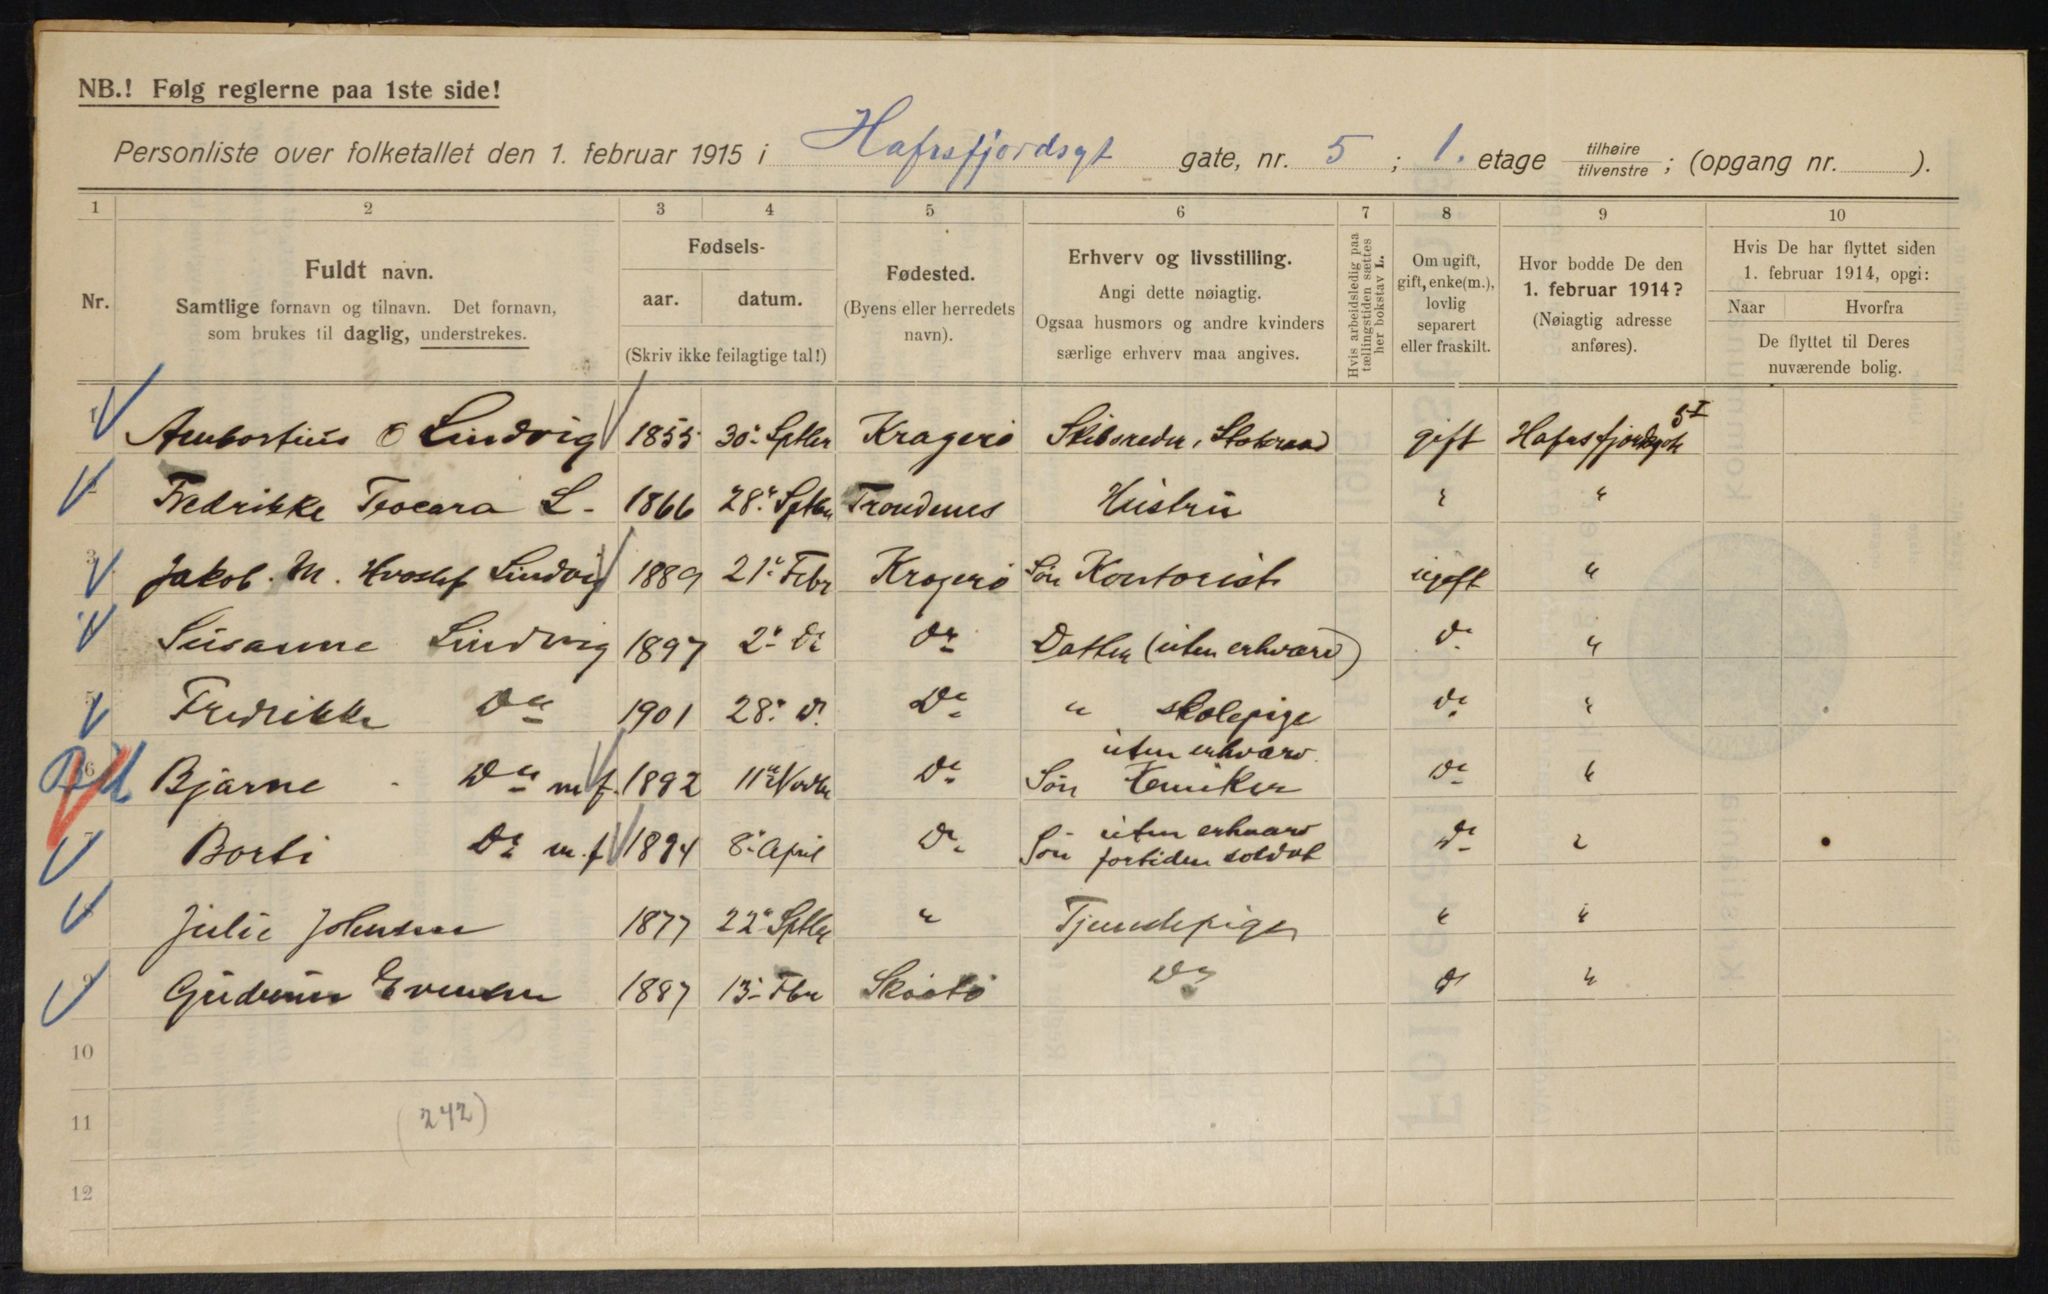 NB.! Følg reglerne paa 1ste side!
Personliste over folketallet den 1. februar 1915 i Hafrsfjordsgt gate, nr. 5 ; 1. etage tilhøire tilvenstre ; (opgang nr. ).
1 2 3 4 5 6 7 8 9 10
Nr.
Fuldt navn.
Samtlige fornavn og tilnavn. Det fornavn,
som brukes til daglig, understrekes.
Fødsels-
aar. datum.
(Skriv ikke feilagtige tal!)
Fødested.
(Byens eller herredets
navn).
Erhverv og livsstilling.
Angi dette nøiagtig.
Ogsaa husmors og andre kvinders
særlige erhverv maa angives.
Hvis arbeidsledig paa
tællingstiden sættes
her bokstav L.
Om ugift,
gift, enke(m.),
lovlig
separert
eller fraskilt.
Hvor bodde De den
1. februar 1914?
(Nøiagtig adresse
anføres).
Hvis De har flyttet siden
1. februar 1914, opgi:
Naar Hvorfra
De flyttet til Deres
nuværende bolig.
1 Ambortius O Lindvig 1855 30' Sptbr Kragerø Skibsreder, Statsraad gift Hafrsfjordsgt 5 I
2 Fredrikke L. 1866 28' Sptbr Trondenes Hustru " "
3 Jakob. M. Hvoslef Lindvig 1889 21' Febr Kragerø Søn Kontorist ugift "
4 Susanne Lindvig 1897 2' do do Datter (uten erhværv) do "
5 Fredrikke Do 1901 28' do Do " skolepige do "
6 Bjarne Do m.f. 1892 11 Novbr Do Søn uten erhværv Kemiker Do "
7 Borti Do m.f. 1894 8' April Do Søn uten erhværv fortiden soldat Do "
8 Julie Johnsen 1877 22' Sptbr " Tjenestepige " "
9 Gudrun Evensen 1887 13' Fbr Skåtø Do do "
10
11
(242)
12